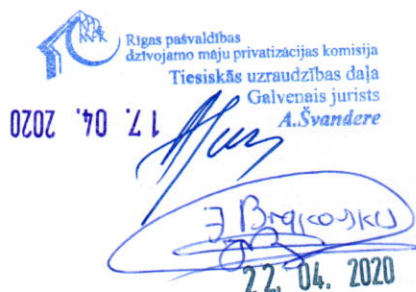 Rīgas pašvaldības
dzīvojamo māju privatizācijas komisija
Tiesiskās uzraudzības daļa
Galvenais jurists
A.Švandere
17. 04. 2020
22. 04. 2020